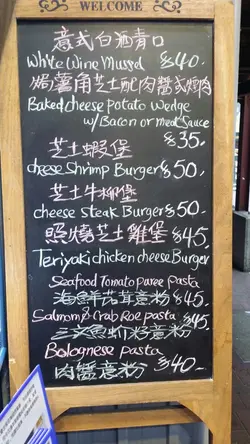 WELCOME
意式白酒青口
White Wine Mussel $40.
焗薯角芝士配肉醬或煙肉
Baked cheese potato wedge
w/ Bacon or meat Sauce
$35.
芝士蝦堡
cheese Shrimp Burger $50.
芝士牛柳堡
cheese Steak Burger $50.
照燒芝士雞堡 $45.
Teriyaki chicken cheese Burger
Seafood Tomato paree pasta
海鮮茄茸意粉 $45.
Salmom & Crab Roe pasta $45.
三文魚虾籽意粉
Bolognese pasta
肉醬意粉 $40.